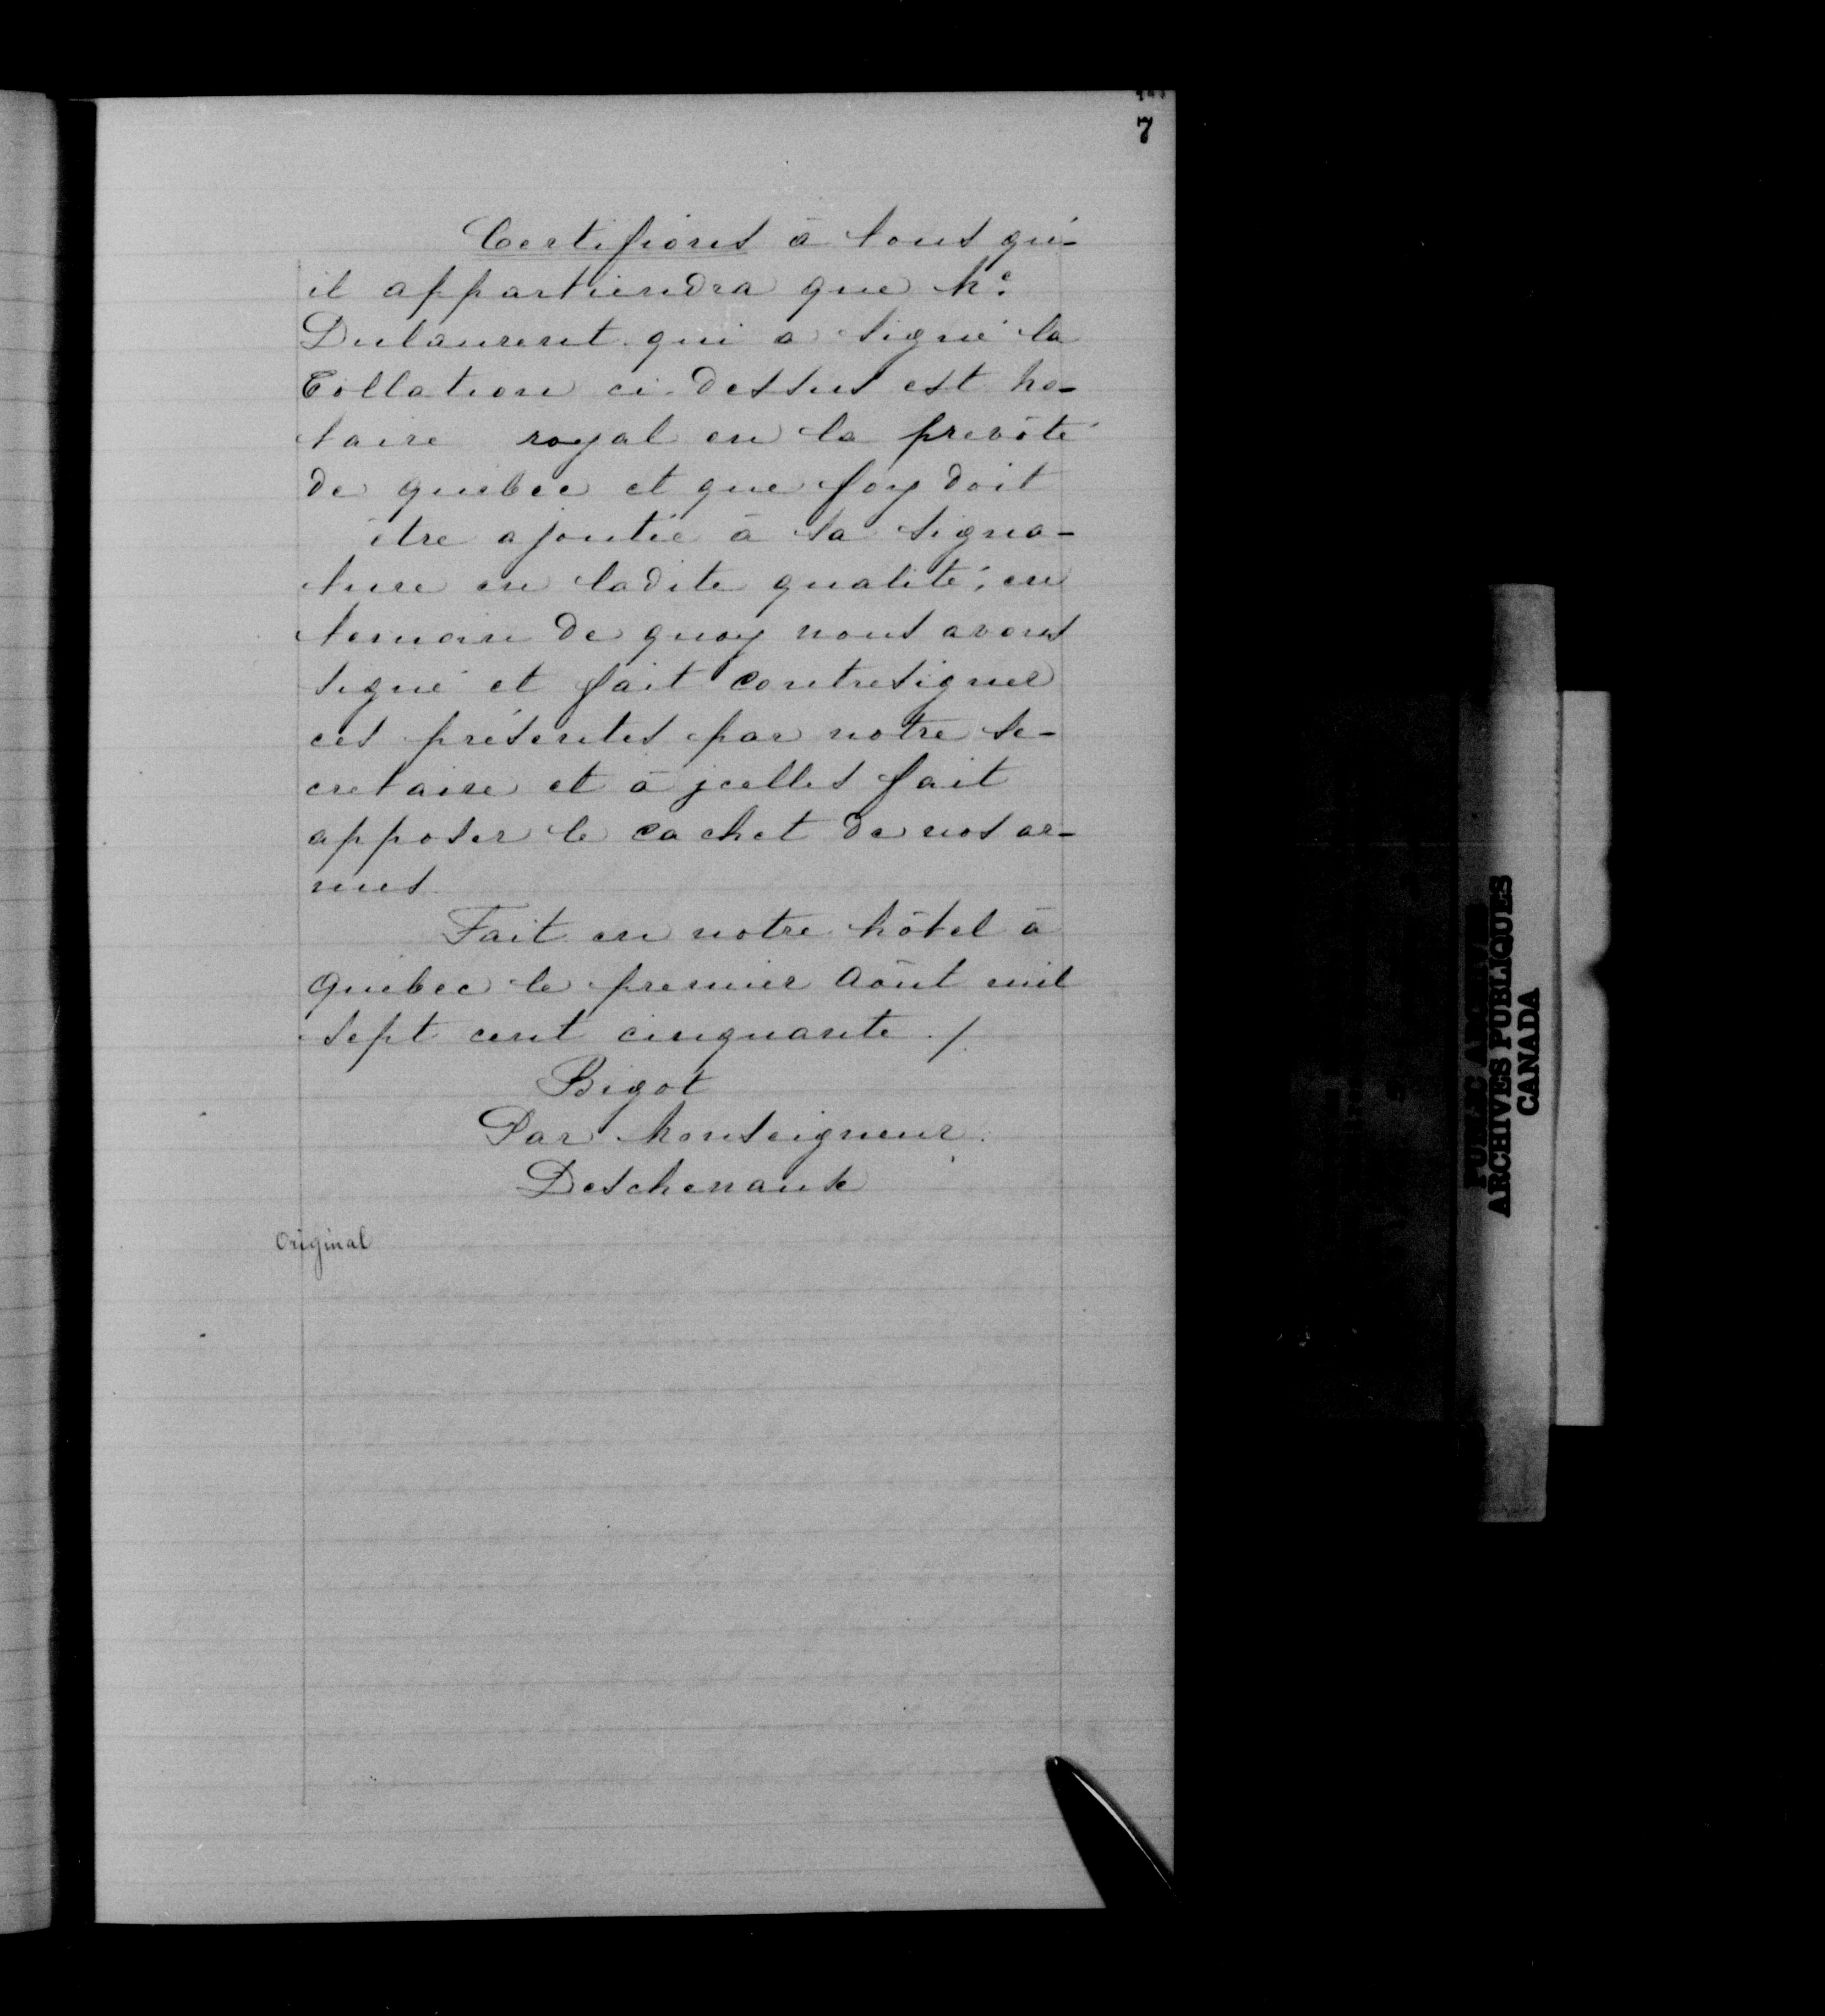 7
Certifions à tous qu'-
il appartiendra que Me.
Dulaurent qui a signé la
Collation ci-dessus est no-
taire royal en la prevôté
de quebec et que foy doit
être ajoutée à sa signa-
ture en ladite qualité; en
temoin de quoy nous avons
signé et fait contresigner
ces présentes par notre se-
cretaire et à jcelles fait
apposer le cachet de nos ar-
mes
Fait en notre hôtel à
Quebec le premier Août mil
sept cent cinquante ./.
Bigot
Par Monseigneur
Deschenaux
Original
ARCHIVES PUBLIQUES
CANADA